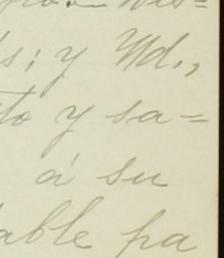 s; y Vd.,
to y sa=
á su
able pa